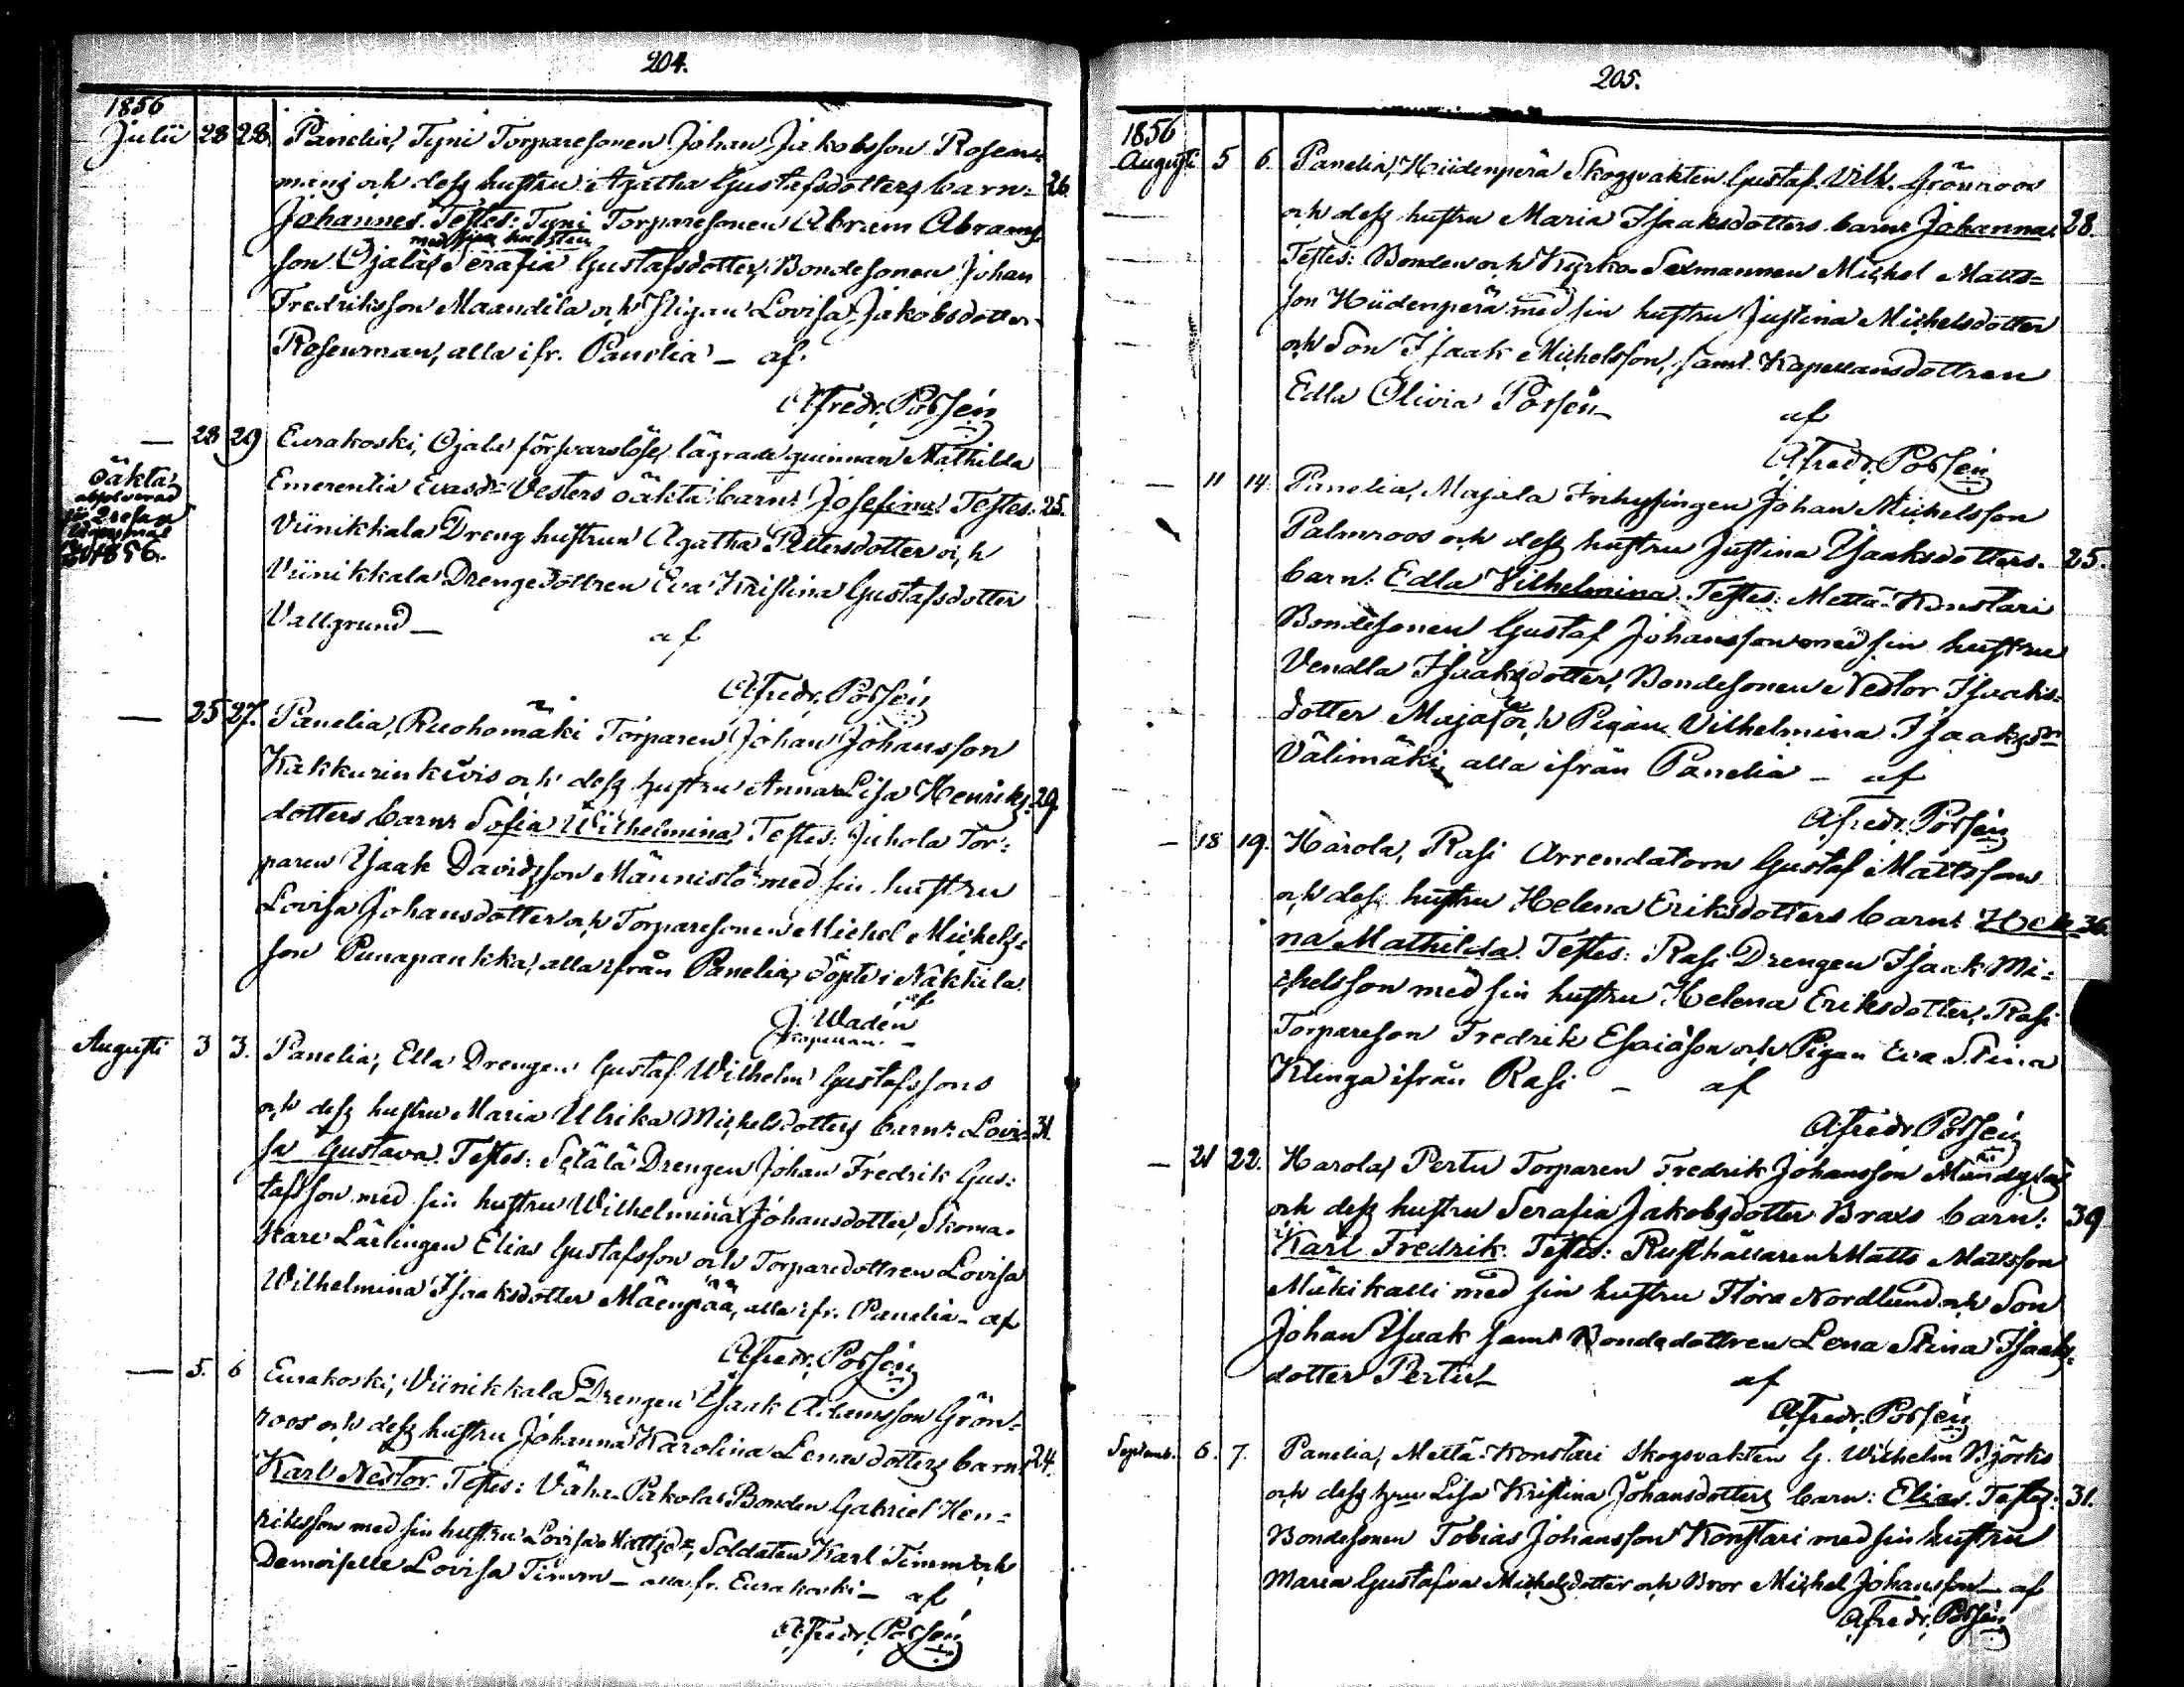 204.
1856
Julii 28 28. Panelia, Tyni Torparesonen Johan Jakobsson Rosen=
mans och dess hustru Agatha Gustafsdotters barn: 26.
Johannes. Testes: Tyni Torparesonen Abram Abrams=
med sin hustru
son Ojala, Serafia Gustafsdotter, Bondesonen Johan
Fredriksson Maandila och Pigan Lovisa Jakobsdotter
Rosenman, alla ifr. Panelia – af
A. Fredr. Porsén
— 28 29 Eurakoski, Ojala försvarslösa lägrade quinnan Mathilda
oäkta;
absolverad
1856.
Emerentia Evasdr Vesters oäkta barn: Josefina. Testes: 25.
Viinikkala Dreng hustrun Agatha Petersdotter och
Viinikkala Drengedottren Eva Kristina Gustafsdotter
Vallgrund — af
A. Fredr. Porsén
— 25 27. Panelia, Ruohomäki Torparen Johan Johansson
Kakkurinkivis och dess hustru Anna Lisa Henriks= 29.
dotters barn: Sofia Wilhelmina. Testes: Juhola Tor=
paren Isaak Davidsson Männistö med sin hustru
Lovisa Johansdotter och Torparesonen Michel Michels=
son Punapankka, alla ifrån Panelia, döpte i Nakkila
af
J. Wadén
Kapellan.
Augusti 3 3. Panelia, Ella Drengen Gustaf Wilhelm Gustafssons
och dess hustru Maria Ulrika Michelsdotters barn: Lovi= 31.
sa Gustava. Testes: Setälä Drengen Johan Fredrik Gus=
tafsson med sin hustru Wilhelmina Johansdotter, Skoma=
kare Lärlingen Elias Gustafsson och Torparedottren Lovisa
Wilhelmina Isaaksdotter Mäenpää, alla ifr. Panelia – af
A. Fredr. Porsén
— 5. 6 Eurakoski, Viinikkala Drengen Isaak Adamsson Grön=
roos och dess hustru Johanna Karolina Lenasdotters barn: 24.
Karl Nestor. Testes: Vähä-Pakola Bonden Gabriel Hen=
riksson med sin hustru Lovisa Mattsdr, Soldaten Karl Timm och
Demoiselle Lovisa Timm – alla fr. Eurakoski – af
A. Fredr. Porsén
205.
1856
Augusti 5 6. Panelia, Hiidenperä Skogsvakten Gustaf Vilh. Grönroos
och dess hustru Maria Isaaksdotters barn: Johanna. 28.
Testes: Bonden och Kyrko-Sexmannen Michel Matts=
son Hiidenperä med sin hustru Justina Michelsdotter
och Son Isaak Michelsson, samt Kapellansdottren
Edla Olivia Porsén – af
A. Fredr. Porsén
— 11 14. Panelia, Majala Inhysingen Johan Michelsson
Palmroos och dess hustru Justina Isaaksdotters 25.
barn: Edla Vilhelmina. Testes: Mettä-Konstari
Bondesonen Gustaf Johansson med sin hustru
Vendla Isaaksdotter, Bondesonen Nestor Isaaks=
dotter Majala och Pigan Vilhelmina Isaaksdr
Välimäki, alla ifrån Panelia – af
A. Fredr. Porsén
— 18 19. Harola, Rasi Arrendatorn Gustaf Mattsson
och dess hustru Helena Eriksdotters barn: Hele= 36.
na Mathilda. Testes: Rasi Drengen Isaak Mi=
chelsson med sin hustru Helena Eriksdotter, Rasi
Torpareson Fredrik Esaiasson och Pigan Eva Stina
Klinga ifrån Rasi – af
A. Fredr. Porsén
— 21 22. Harola, Pertu Torparen Fredrik Johansson
och dess hustru Serafia Jakobsdotter Brass barn: 39
Karl Fredrik. Testes: Rusthållaren Matts Mattsson
Mäkikalli med sin hustru Flora Nordlund och Son
Johan Isaak samt Bondedottren Lena Stina Isaaks=
dotter Pertu – af
A. Fredr. Porsén
Septemb. 6. 7. Panelia, Mettä-Konstari Skogsvakten G. Wilhelm Björks
och dess hru Lisa Kristina Johansdotters barn: Elias. Testes: 31.
Bondesonen Tobias Johansson Konstari med sin hustru
Maria Gustafva Michelsdotter och Bror Michel Johansson – af
A. Fredr. Porsén